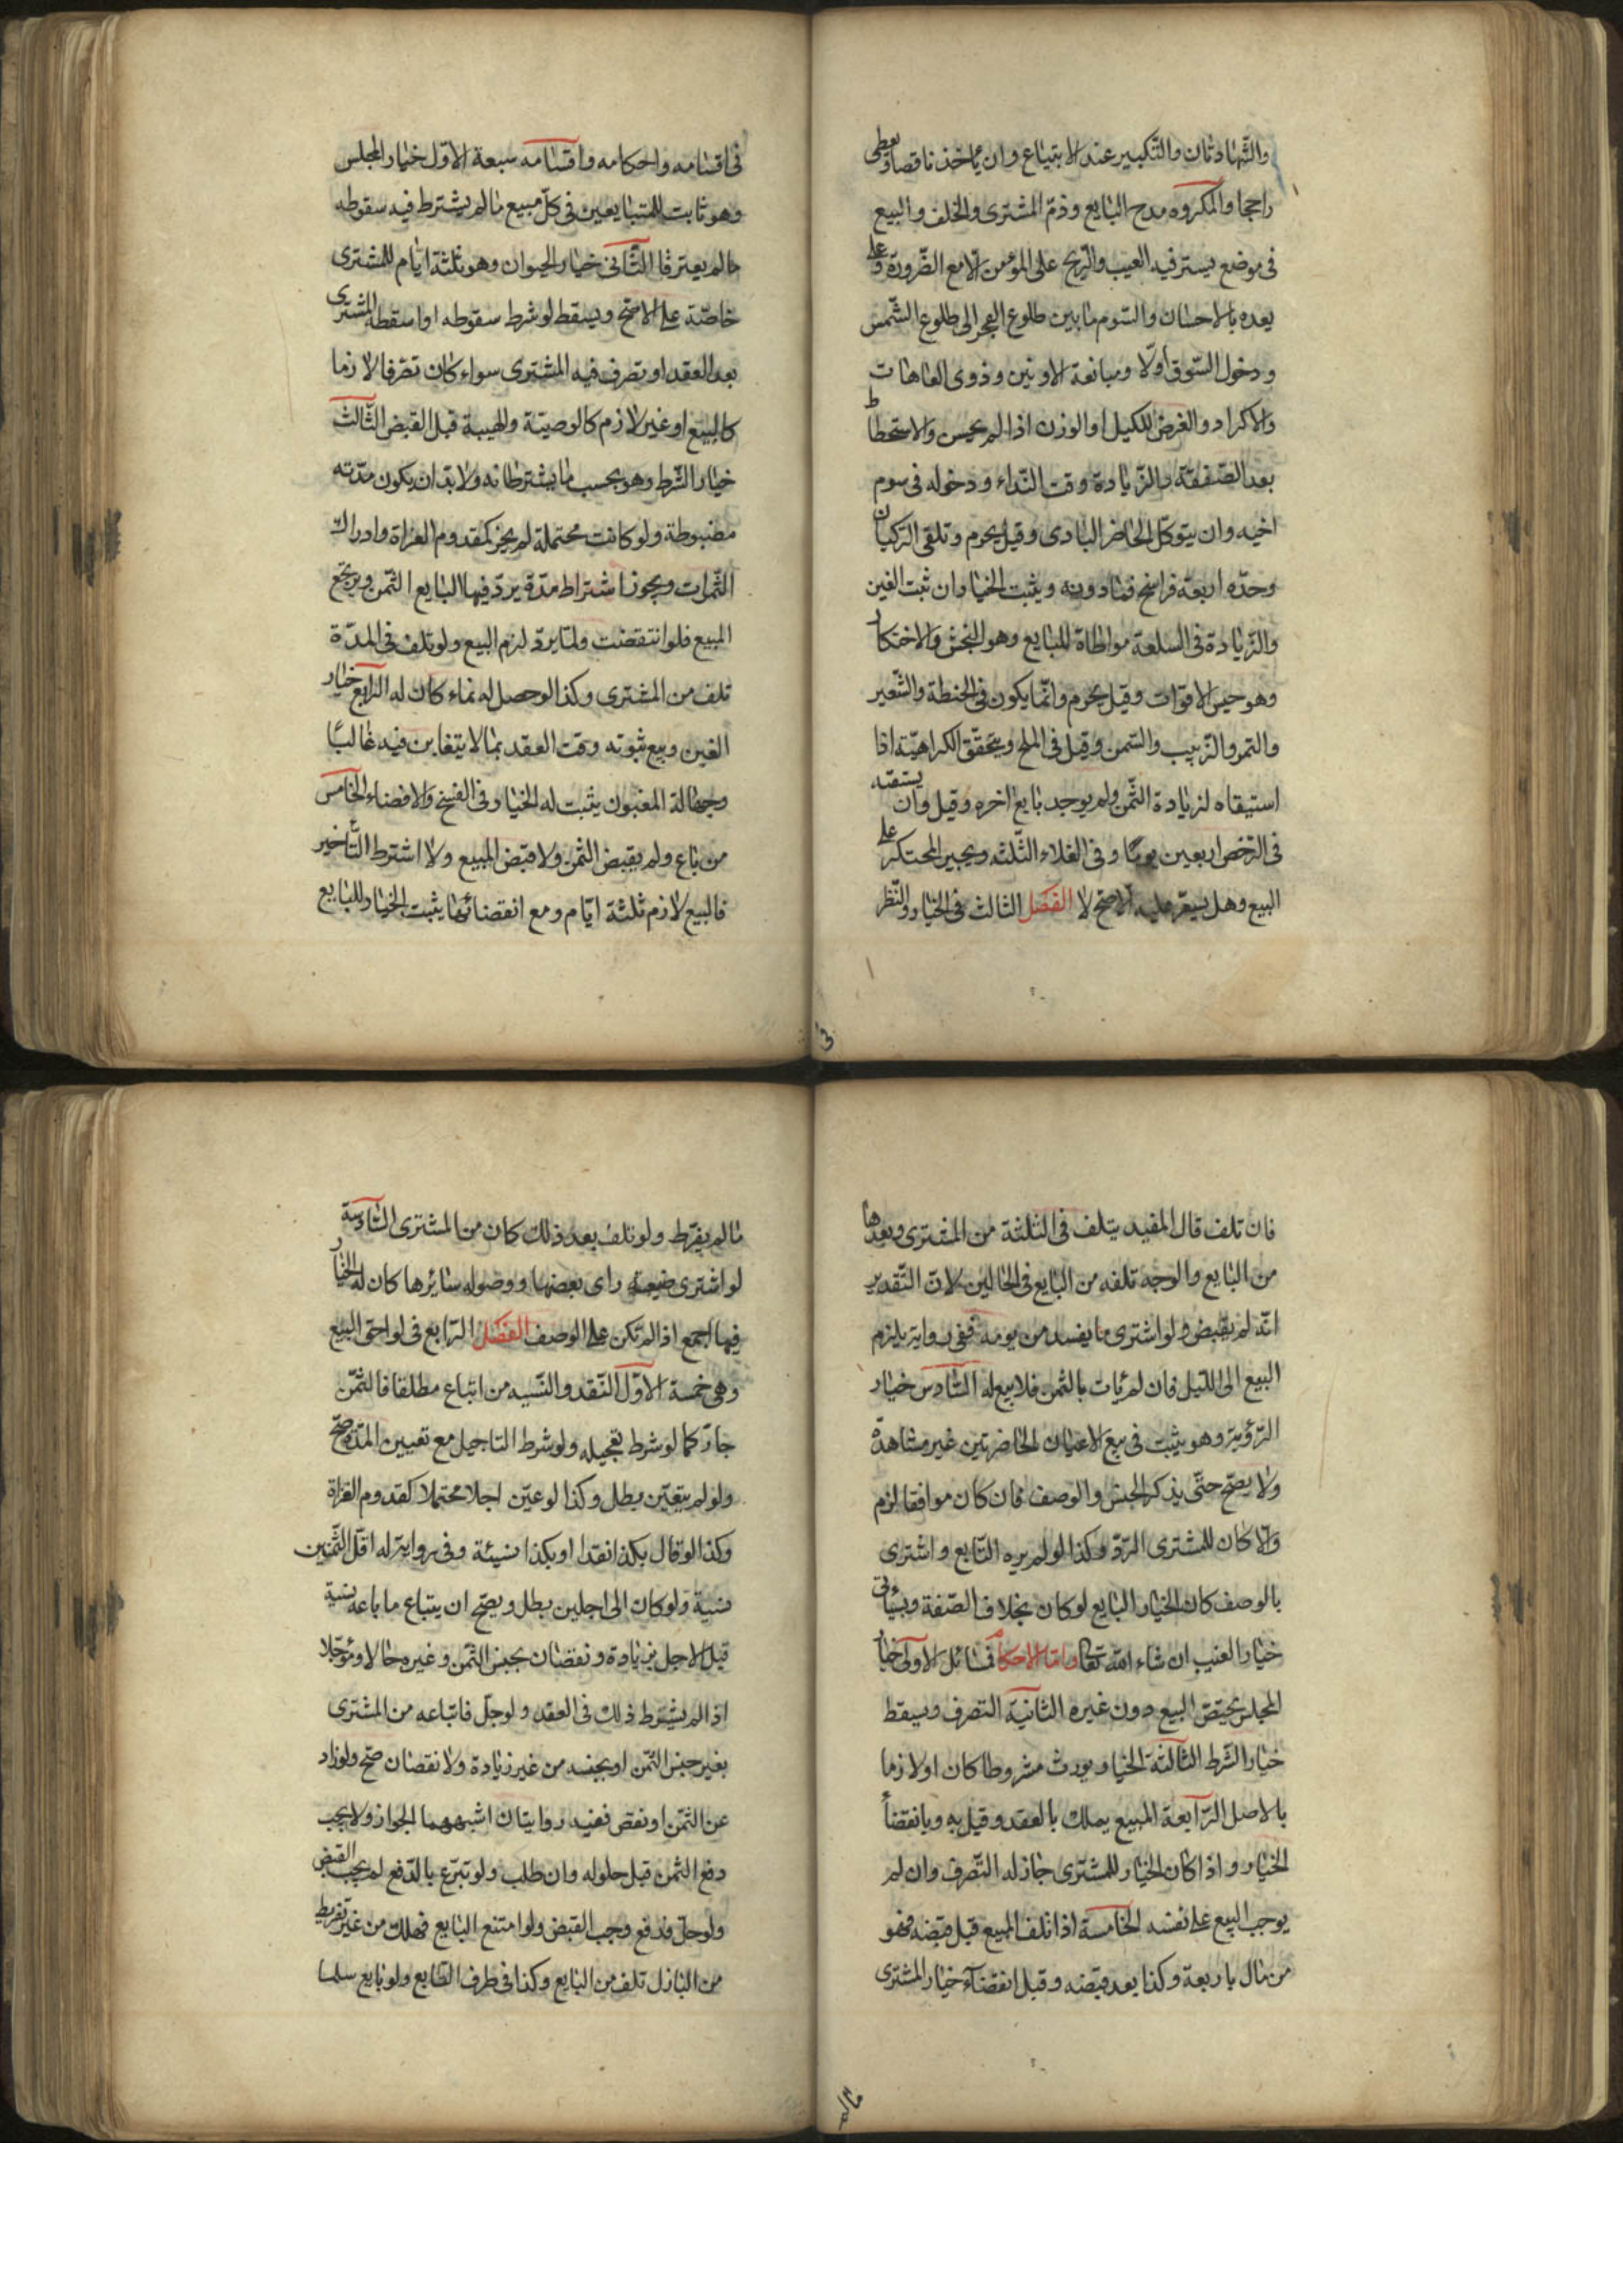 والشهادتان والتكبير عند الابتياع وان ياخذ ناقصا ويعطى
راجحا والمكروه مدح البايع وذم المشترى والحلف والبيع
فى موضع يستر فيه العيب والربح على المؤمن الا مع الضرورة وعلى
يعده بالاحسان والسوم ما بين طلوع الفجر الى طلوع الشمس
ودخول السوق اولا ومبايعة الادنين وذوى العاهات
والاكراد والتعرض للكيل او الوزن اذا لم يحسن والاستحطاط
بعد الصفقة والزيادة وقت النداء ودخوله فى سوم
اخيه وان يتوكل الحاضر البادى وقيل يحرم وتلقى الركبان
وحده اربعة فراسخ فما دونه ويثبت الخيار ان ثبت الغبن
والزيادة فى السلعة مواطاة للبايع وهو النجش والاحتكار
وهو حبس الاقوات وقيل يحرم وانما يكون فى الحنطة والشعير
والتمر والزبيب والسمن وقيل فى الملح ويتحقق الكراهية اذا
استبقاه لزيادة الثمن ولم يوجد بايع اخره وقيل وان يستبقيه
فى الرخص اربعين يوما وفى الغلاء الثلثه ويجبر المحتكر على
البيع وهل يسعر عليه الاصح لا الفصل الثالث فى الخيار والنظر
فى اقسامه واحكامه واقسامه سبعة الاول خيار المجلس
وهو ثابت للمتبايعين فى كل مبيع ما لم يشترط فيه سقوطه
ما لم يفترقا الثانى خيار الحيوان وهو ثلثة ايام للمشترى
خاصة على الاصح ويسقط لو شرط سقوطه او اسقطه المشترى
بعد العقد او تصرف فيه المشترى سواء كان تصرفا لازما
كالبيع او غير لازم كالوصية والهبة قبل القبض الثالث
خيار الشرط وهو بحسب ما يشترطانه ولا بد ان يكون مدته
مضبوطة ولو كانت محتملة لم يجز كمقدوم الغزاة وادراك
الثمرات ويجوز اشتراط مدة يرد فيها البايع الثمن ويرتجع
المبيع فلو انقضت ولما يرد لزم البيع ولو تلف فى المدة
تلف من المشترى وكذا لو حصل له نماء كان له الرابع خيار
الغبن ومع ثبوته وقت العقد بما لا يتغابن فيه غالبا
وجهالة المغبون يثبت له الخيار فى الفسخ والامضاء الخامس
من باع ولم يقبض الثمن ولا قبض المبيع ولا اشترط التأخير
فالبيع لازم ثلثة ايام ومع انقضائها يثبت الخيار للبايع
فان تلف قال المفيد يتلف فى الثلثة من المشترى وبعدها
من البايع والوجه تلفه من البايع فى الحالين لان التقدير
انه لم يقبض ولو اشترى ما يفسد من يومه ففى رواية يلزم
البيع الى الليل فان لم يات بالثمن فلا بيع له السادس خيار
الرؤية وهو يثبت فى بيع الاعيان الحاضرتين غير مشاهدة
ولا يصح حتى يذكر الجنس والوصف فان كان موافقا لزم
والا كان للمشترى الرد وكذا لو لم يره البايع واشترى
بالوصف كان الخيار البايع لو كان بخلاف الصفة وسيأتى
خيار العيب ان شاء الله تعالى واما الاحكام فمسائل الاولى خيار
المجلس يختص البيع دون غيره الثانية التصرف ويسقط
خيار الشرط الثالثة الخيار يورث مشروطا كان او لازما
بالاصل الرابعة المبيع يملك بالعقد وقيل به وبانقضاء
الخيار واذا كان الخيار للمشترى جاز له التصرف وان لم
يوجب البيع على نفسه الخامسة اذا تلف المبيع قبل قبضه فهو
من مال باربعة وكذا بعد قبضه وقبل انقضاء خيار المشترى
ما لم يفرط ولو تلف بعد ذلك كان من المشترى السادسة
لو اشترى ضيعة راى بعضها ووصف له سائرها كان له الخيار
فيها اجمع اذا لم تكن على الوصف الفصل الرابع فى لواحق البيع
وهى خمسة الاول النقد والنسيه من ابتاع مطلقا فالثمن
حال كما لو شرط تعجيله ولو شرط التاجيل مع تعيين المدة صح
ولو لم يتعين بطل وكذا لو عين اجلا محتملا كقدوم الغزاة
وكذا لو قال بكذا نقدا او بكذا نسيئة وفى رواية له اقل الثمنين
نسية ولو كان الى اجلين بطل ويصح ان يبتاع ما باعه نسية
قبل الاجل بزيادة ونقصان بجنس الثمن وغيره حالا ومؤجلا
اذا لم يشترط ذلك فى العقد ولو حل فابتاعه من المشترى
بغير جنس الثمن او بجنسه من غير زيادة ولا نقصان صح ولو زاد
عن الثمن او نقص ففيه روايتان اشبههما الجواز ولا يجب
دفع الثمن قبل حلوله وان طلب ولو تبرع بالدفع لم يجب القبض
ولو حل فدفع وجب القبض ولو امتنع البايع فهلك من غير تفريط
من الباذل تلف من البايع وكذا فى طرف البايع ولو بايع سلما